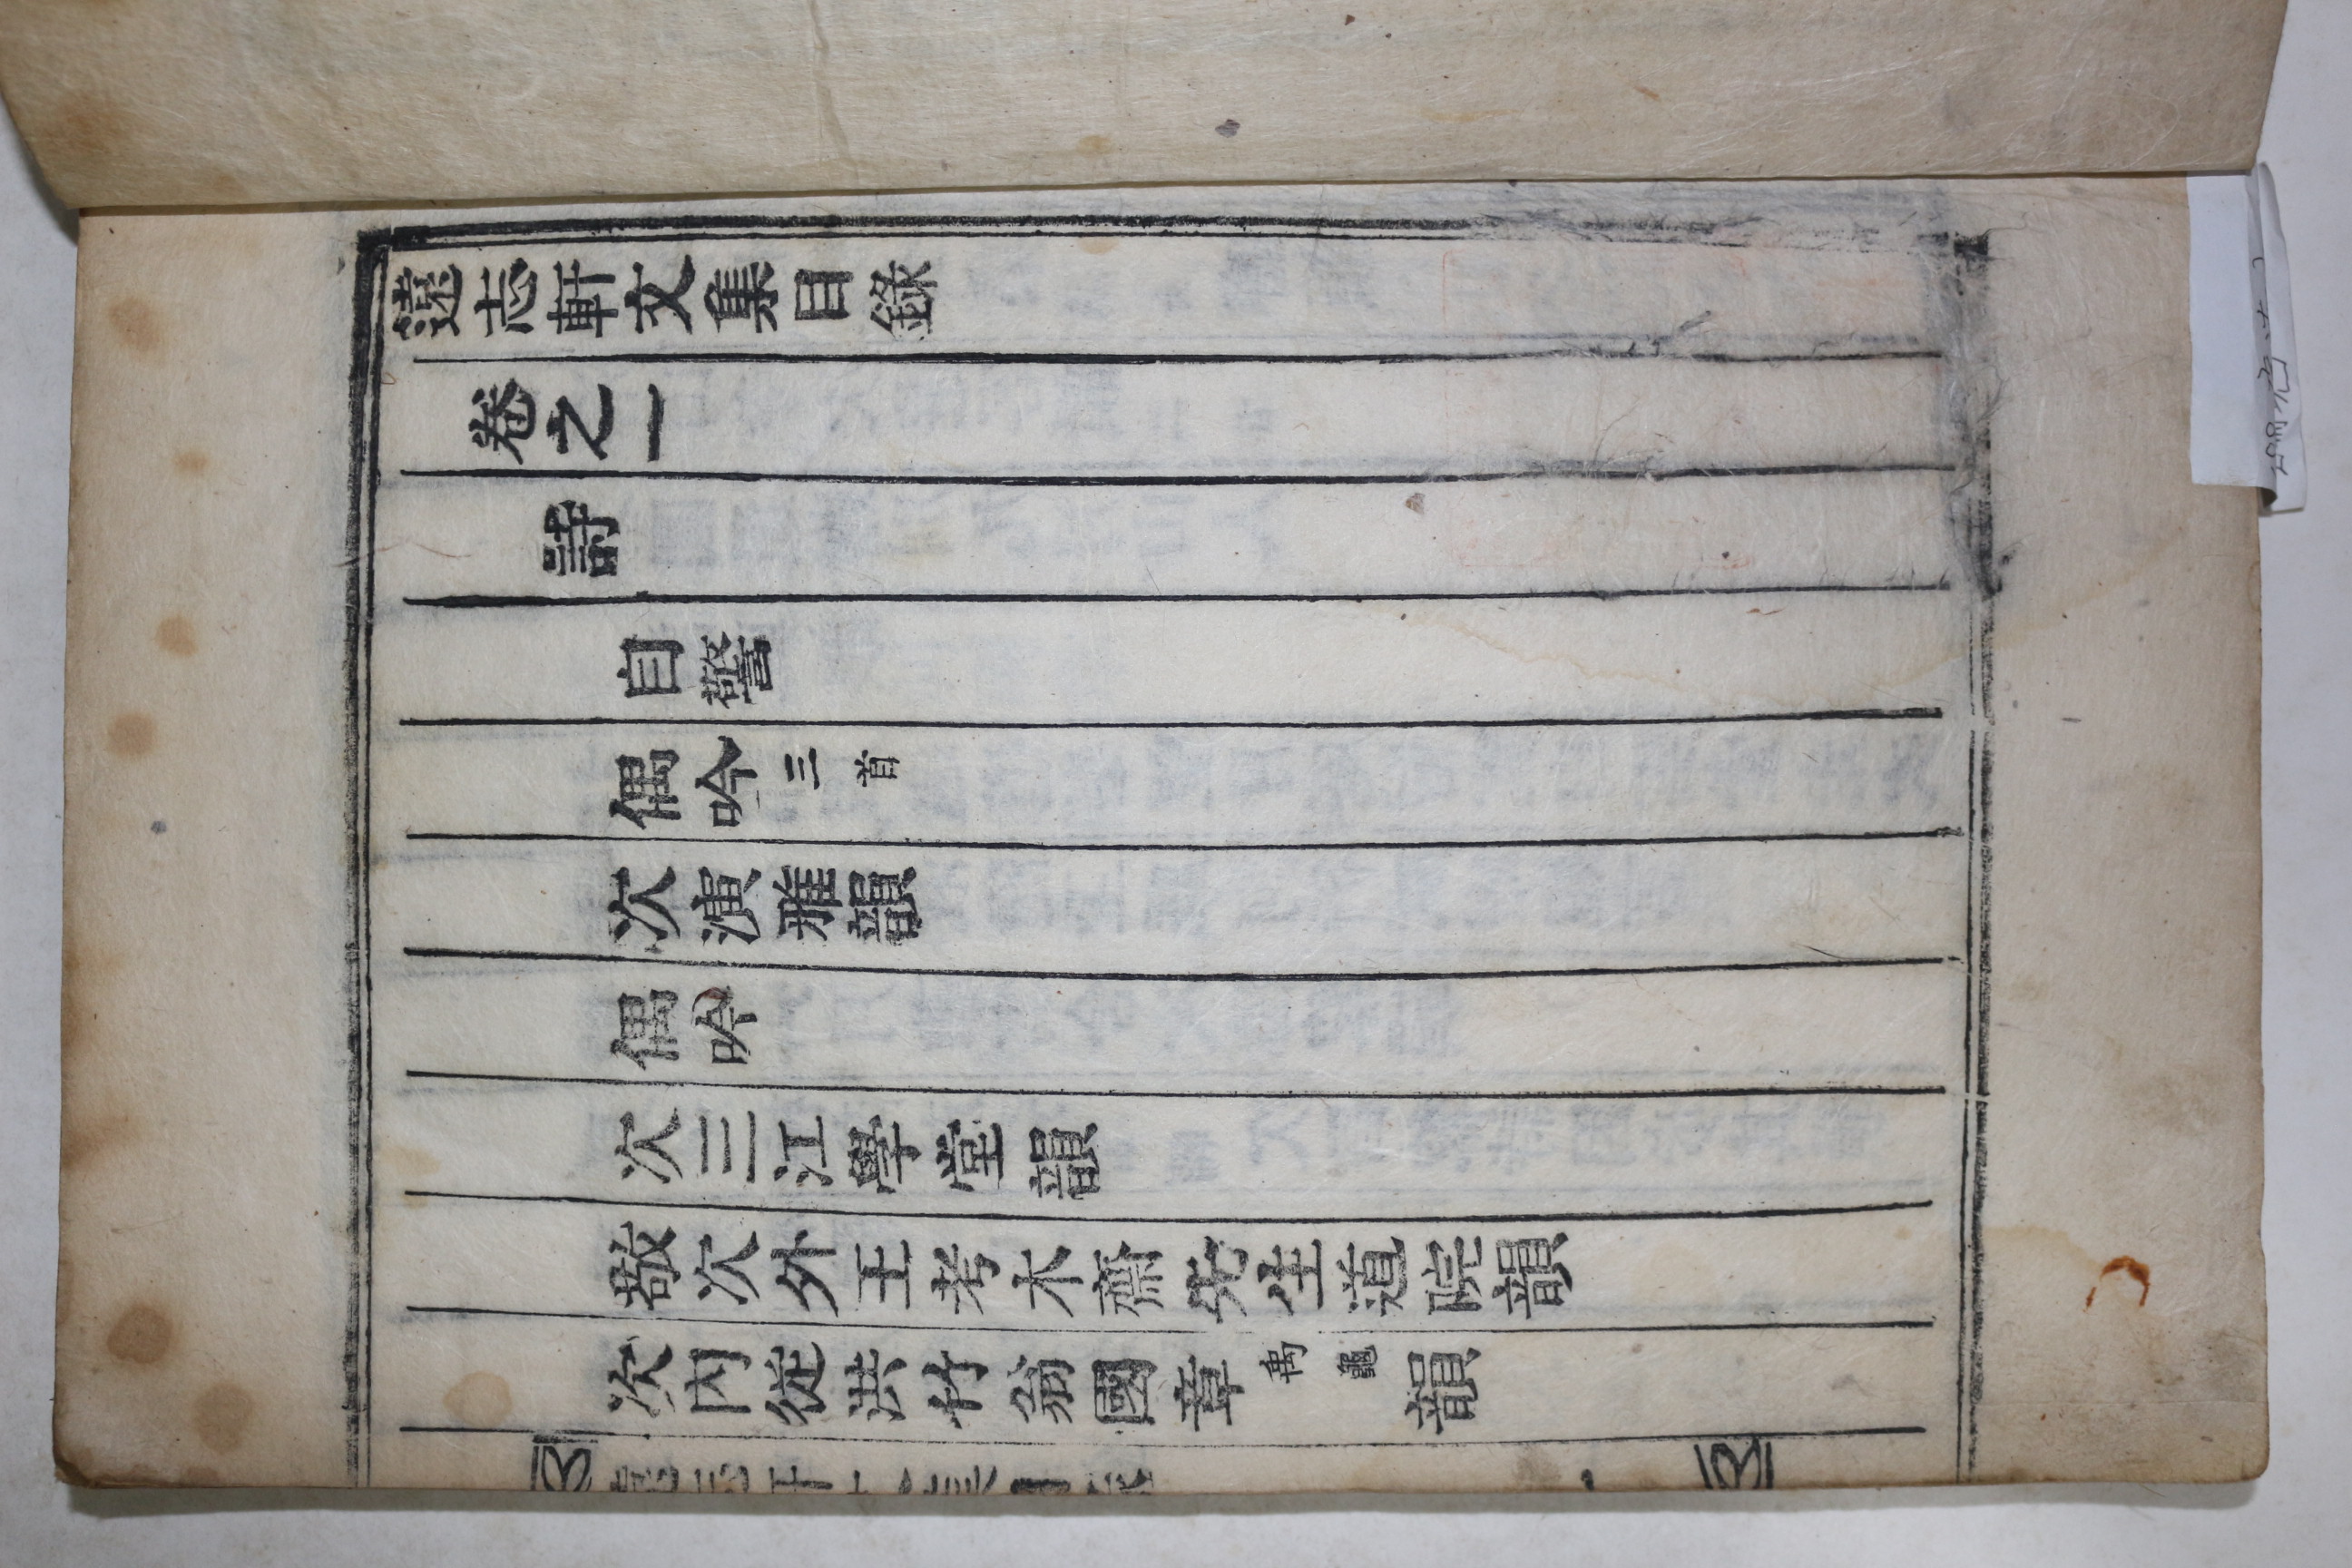 遠志軒文集目錄
卷之一
詩
自警
偶吟 三首
次演雅韻
偶吟
次三江學堂韻
敬次外王考木齋先生道院韻
次內從洪竹翁國章 禹龜 韻
遠志軒文集目錄